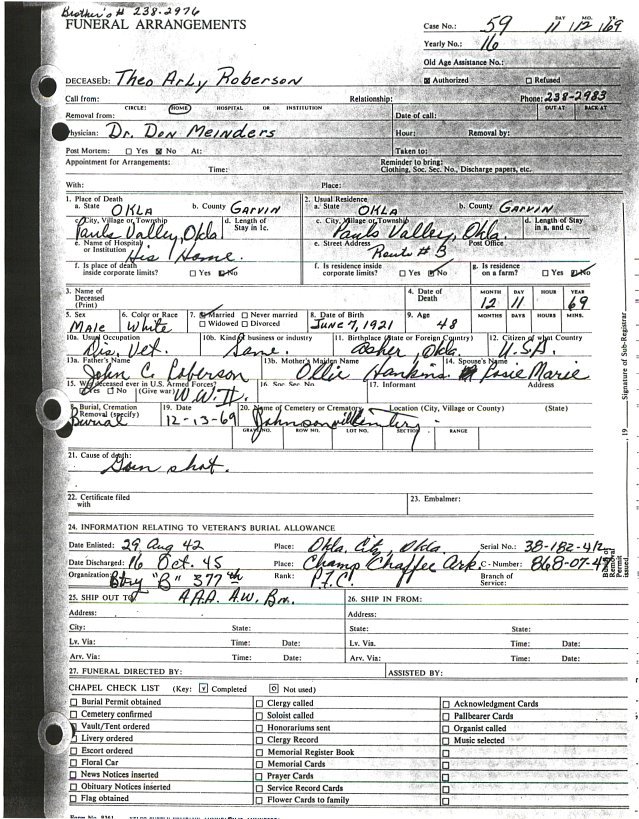 Brother's # 238-2976
FUNERAL ARRANGEMENTS
Case No.: 59 DAY 11 MO. 12 YR. 69
Yearly No.: 16
Old Age Assistance No.:
DECEASED: Theo Arly Roberson
Authorized Refused
Call from: Relationship: Phone: 238-2983
CIRCLE: HOME HOSPITAL OR INSTITUTION OUT AT BACK AT
Removal from: Date of call:
Physician: Dr. Don Meinders Hour: Removal by:
Post Mortem: Yes No At: Taken to:
Appointment for Arrangements: Reminder to bring:
Time: Clothing, Soc. Sec. No., Discharge papers, etc.
With: Place:
1. Place of Death 2. Usual Residence
a. State OKLA b. County GARVIN a. State OKLA b. County GARVIN
c. City, Village or Township d. Length of Stay in 1c. c. City, Village or Township d. Length of Stay in a. and c.
Pauls Valley, Okla Pauls Valley, Okla.
e. Name of Hospital or Institution His Home. e. Street Address Route # 3 Post Office
f. Is place of death inside corporate limits? Yes No f. Is residence inside corporate limits? Yes No g. Is residence on a farm? Yes No
3. Name of Deceased (Print) 4. Date of Death MONTH 12 DAY 11 HOUR YEAR 69
5. Sex 6. Color or Race 7. Married Never married 8. Date of Birth 9. Age MONTHS DAYS HOURS MINS.
Male White Widowed Divorced June 7, 1921 48
10a. Usual Occupation 10b. Kind of business or industry 11. Birthplace (State or Foreign Country) 12. Citizen of what Country
Dis. Vet. Same. Asher, Okla. U.S.A.
13a. Father's Name 13b. Mother's Maiden Name 14. Spouse's Name
John C. Roberson Ollie Hankins Rosie Marie
15. Was deceased ever in U.S. Armed Forces? 16. Soc. Sec. No. 17. Informant Address
Yes No (Give war) W.W. II.
18. Burial, Cremation Removal (specify) 19. Date 20. Name of Cemetery or Crematory Location (City, Village or County) (State)
Burial 12-13-69
GRAVE NO. ROW NO. LOT NO. SECTION RANGE
21. Cause of death:
Gun shot.
22. Certificate filed with 23. Embalmer:
24. INFORMATION RELATING TO VETERAN'S BURIAL ALLOWANCE
Date Enlisted: 29 Aug 42 Place: Okla. City, Okla. Serial No.: 38-182-412
Date Discharged: 16 Oct. 45 Place: Camp Chaffee Ark. C - Number: 868-07-4
Organization: Btry "B" 377th Rank: P.F.C. Branch of Service:
25. SHIP OUT TO A.A.A. A.W. Bn. 26. SHIP IN FROM:
Address: Address:
City: State: State: State:
Lv. Via: Time: Date: Lv. Via: Time: Date:
Arv. Via: Time: Date: Arv. Via: Time: Date:
27. FUNERAL DIRECTED BY: ASSISTED BY:
CHAPEL CHECK LIST (Key: Completed Not used)
Burial Permit obtained Clergy called Acknowledgment Cards
Cemetery confirmed Soloist called Pallbearer Cards
Vault/Tent ordered Honorariums sent Organist called
Livery ordered Clergy Record Music selected
Escort ordered Memorial Register Book
Floral Car Memorial Cards
News Notices inserted Prayer Cards
Obituary Notices inserted Service Record Cards
Flag obtained Flower Cards to family
Signature of Sub-Registrar
19
Burial or Removal Permit issued